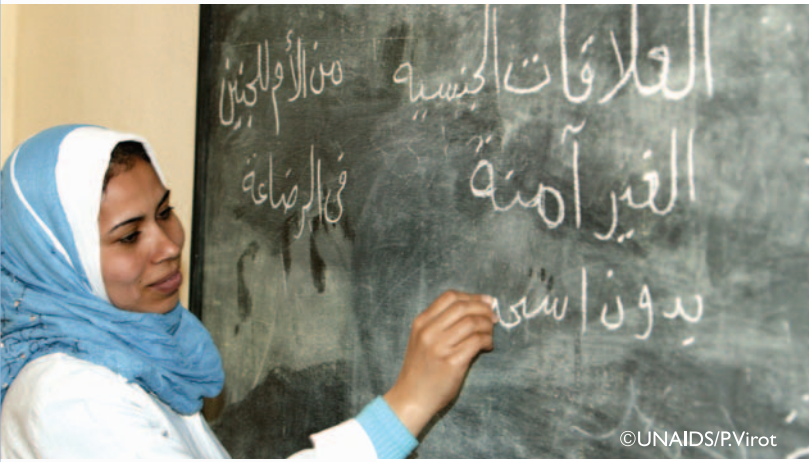 العلاقات الجنسيه
الغير آمنة
بدون استح
من الأم للجنين
في الرضاعة
©UNAIDS/P.Virot